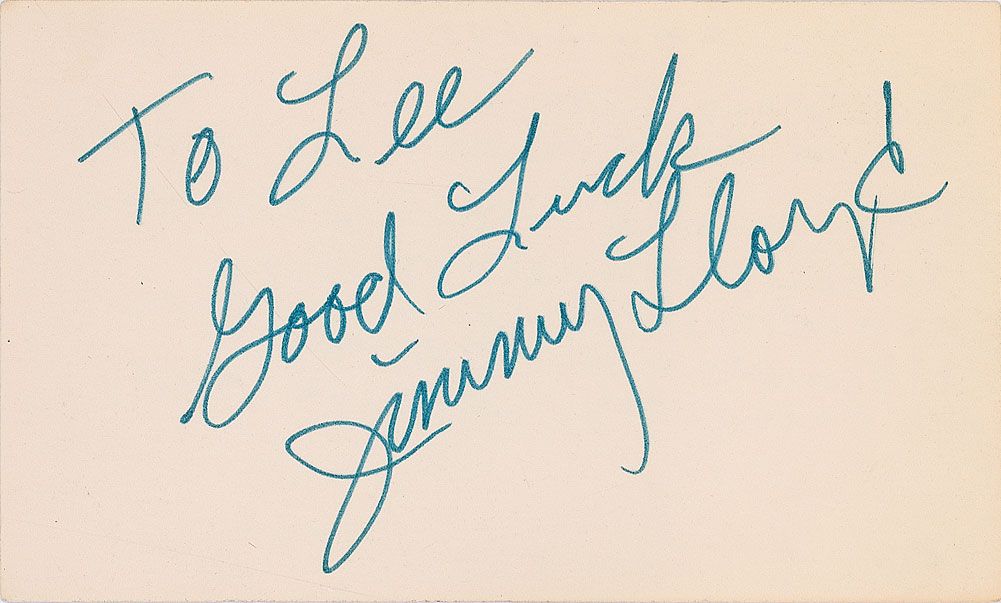 To Lee
Good Luck
Jimmy Lloyd